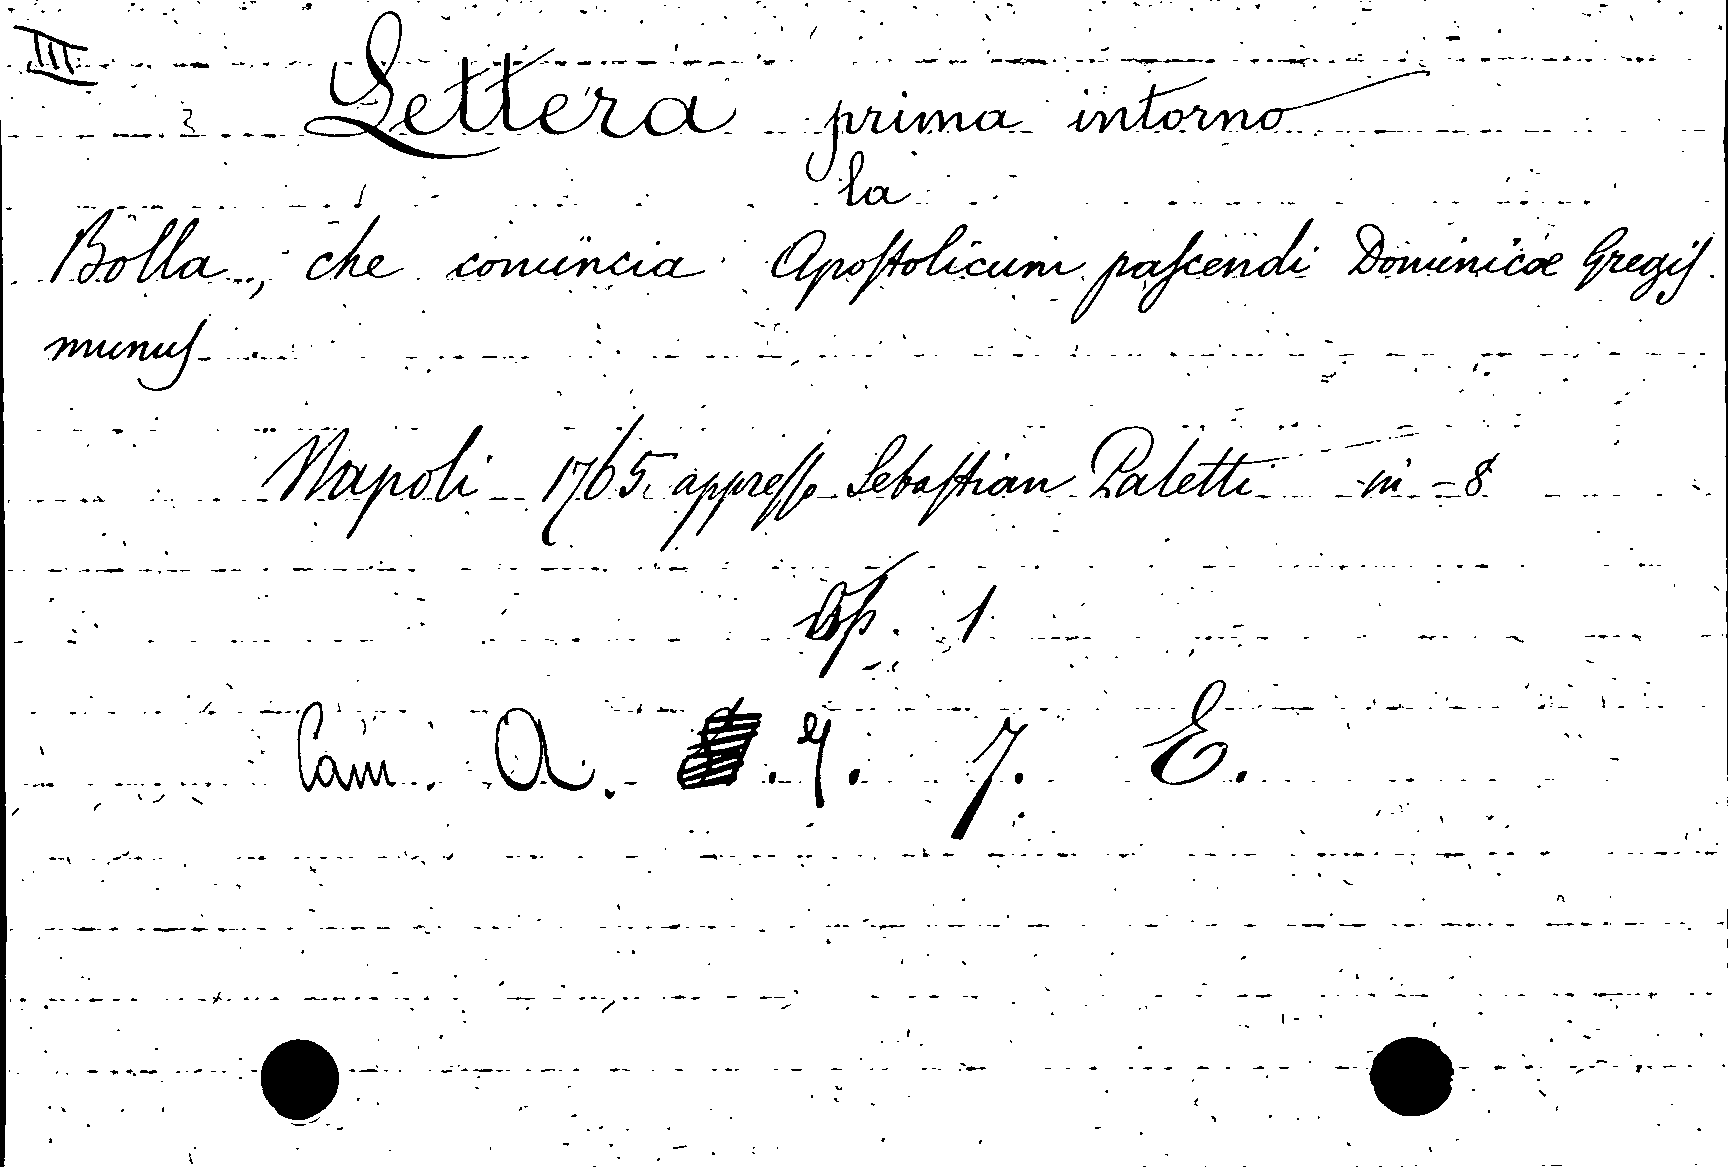 III
Lettera prima intorno
la
Bolla, che comincia Apoſtolicum paſcendi Dominicæ Gregiſ
munuſ
Napoli 1765. appreſſo Sebaſtian Paletti in - 8
Op. 1
Cam. A. . 9. 7. E.